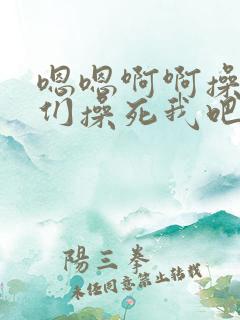 嗯嗯啊啊操
们操死我吧
陽三拳
未任同意禁止转载